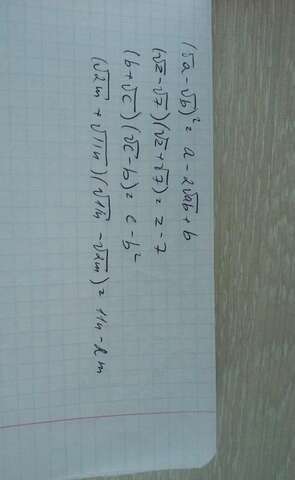 (√a - √b)² = a - 2√ab + b
(√z - √7)(√z + √7) = z - 7
(b + √c)(√c - b) = c - b²
(√2m + √11n)(√11n - √2m) = 11n - 2m